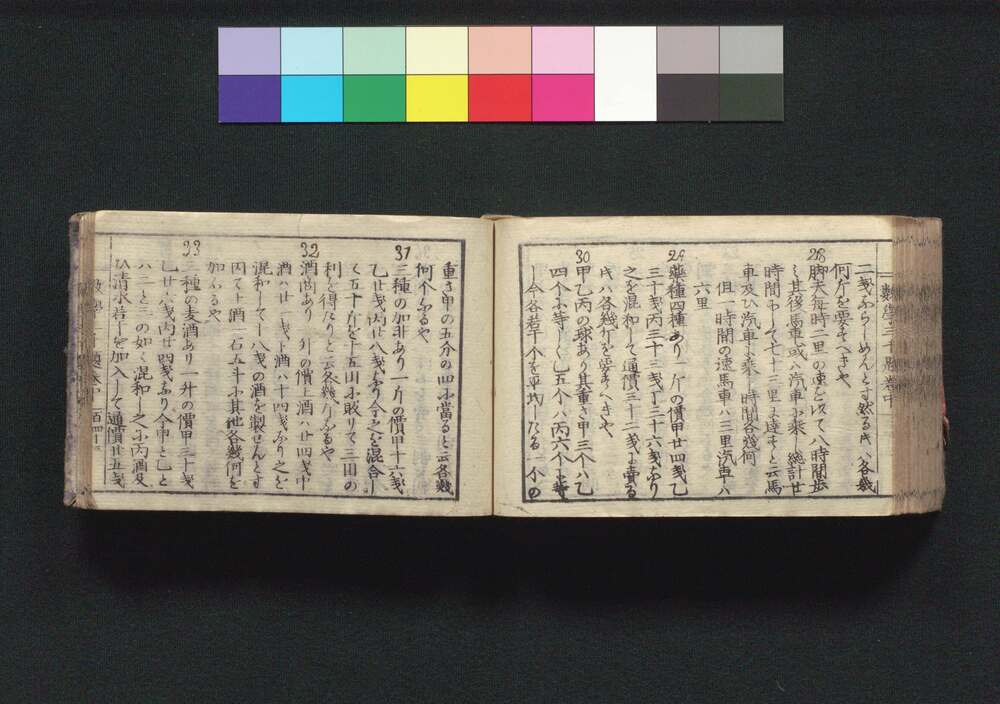 二戔ふらしめんとす然る𪜈ハ各幾
何斤を要すべきや
28
脚夫毎時二里の速を以て八時間歩
し其後馬車或ハ汽車に乗し總計廿
時間にして七十三里に達すと云馬
車及ひ汽車に乗し時間各幾何
但一時間の速馬車ハ三里汽車ハ
六里
29
藥種四種あり一斤の價甲廿四戔乙
三十戔丙三十三戔丁三十六戔なり
之を混和して通價三十二戔に賣る
𪜈ハ各幾斤を要すへきや
30
甲乙丙の球あり其重さ甲三个ハ乙
四个に等しく乙五个ハ丙六个に等
し今各若干个を平均したる一个の
重さ甲の五分の四に當ると云各幾
何个なるや
31
三種の加非あり一斤の價甲十六戔
乙廿戔丙廿八戔なり今之を混合し
て五十斤を十五弗に賣りて三弗の
利を得たりと云各幾斤なるや
32
酒商あり一升の價上酒ハ廿四戔中
酒ハ廿一戔下酒ハ十四戔なり之を
混和して十八戔の酒を製せんとす
因て下酒一石五斗に其他各幾何を
加ふるや
33
三種の麦酒あり一升の價甲三十戔
乙廿八戔丙廿四戔なり今甲と乙と
ハ二と三の如く混和し之に丙酒及
ひ清水若しを加入して通價廿五戔